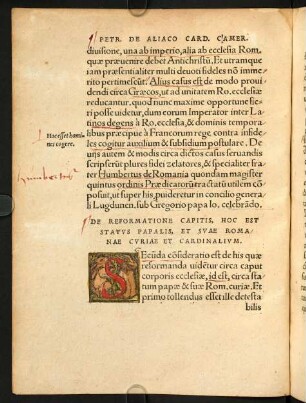 PETR. DE ALIACO CARD. CAMER.
divisione, una ab imperio, alia ab ecclesia Rom.
quæ prævenire debet Antichristũ. Et utramque
iam præsentialiter multi devoti fideles nõ imme
rito pertimescũt. Alius casus est de modo provi
dendi circa Græcos, ut ad unitatem Ro. ecclesiæ
reducantur, quod nunc maxime opportune fie
ri posse videtur, dum eorum Imperator inter La
tinos degens à Ro. ecclesia, & dominis tempora
libus præcipue à Francorum rege contra infide
les cogitur auxilium & subsidium postulare. De
Hac esset homi
nes cogere.
Humbertus
ijs autem & modis circa dictos casus servandis
scripserũt plures fidei zelatores, & specialiter fra
ter Humbertus de Romania quondam magister
quintus ordinis Prædicatorũ tractatũ utilem cõ
posuit, ut super his, provideretur in concilio genera
li Lugdunen. sub Gregorio papa io. celebrãdo.
DE REFORMATIONE CAPITIS, HOC EST
STATVS PAPALIS, ET SVAE ROMA-
NAE CVRIAE ET CARDINALIVM.
Secũda cõsideratio est de his quæ
reformanda uidẽtur circa caput
corporis ecclesiæ, id est, circa sta
tum papæ & suæ Rom. curiæ. Et
primo tollendus esset ille detesta
bilis